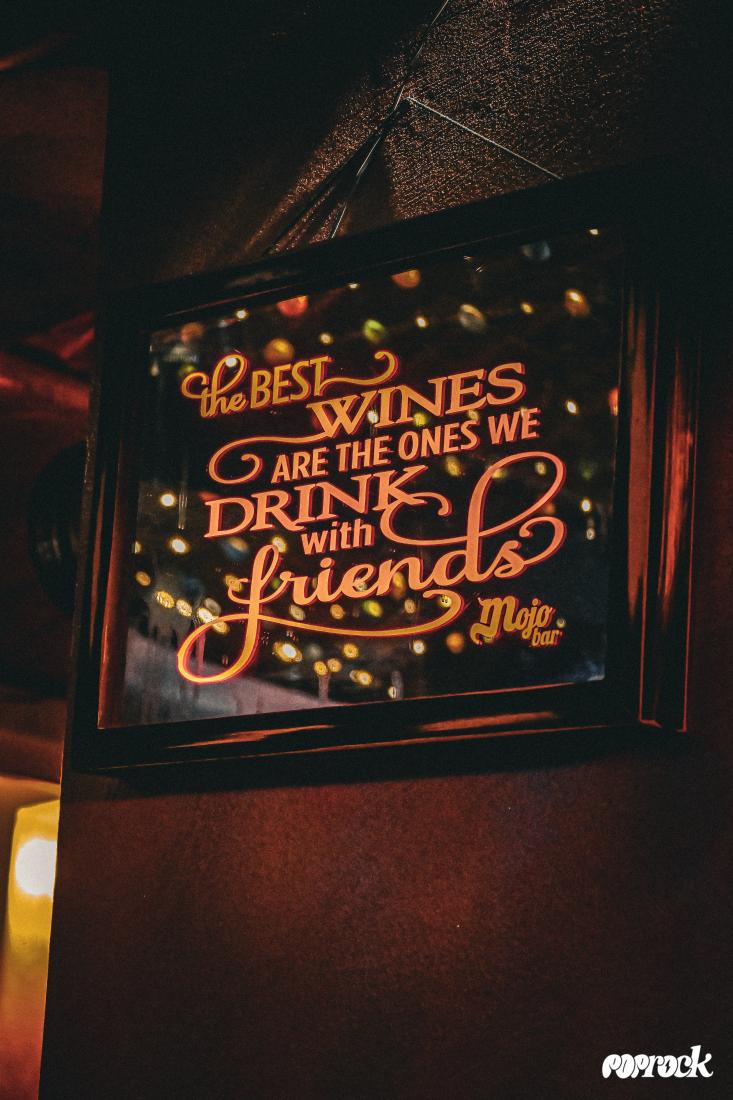 the BEST
WINES
ARE THE ONES WE
DRINK
with
friends
Mojo
bar
POProck